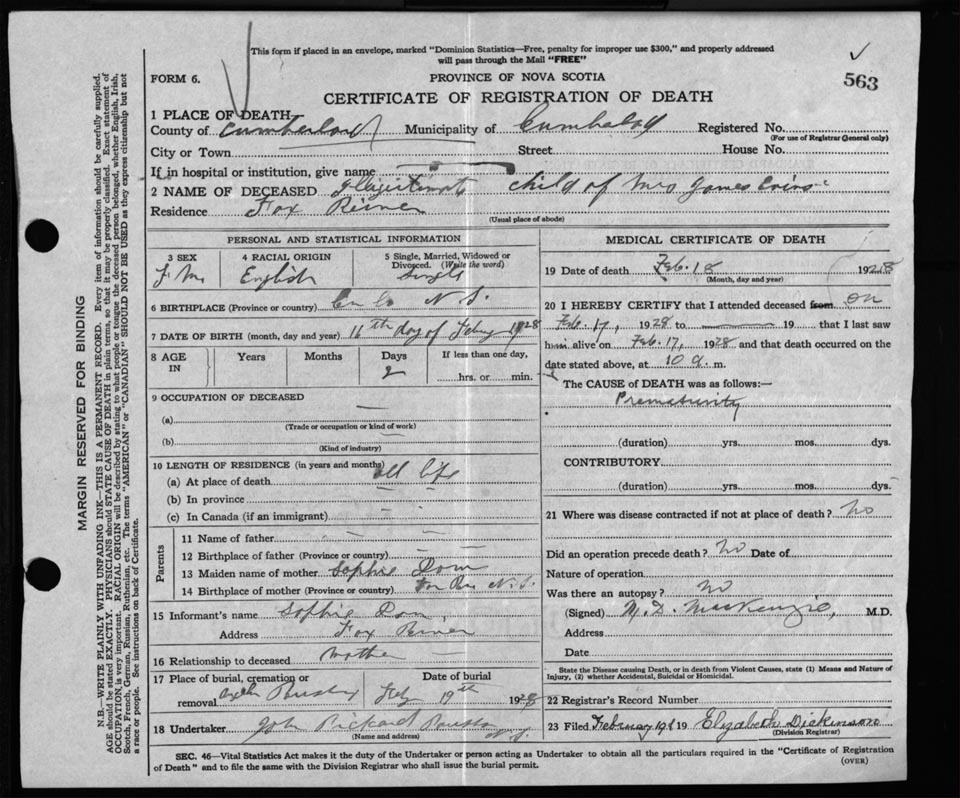 This form if placed in an envelope, marked "Dominion Statistics—Free, penalty for improper use $300," and properly addressed
will pass through the Mail "FREE"
FORM 6.
PROVINCE OF NOVA SCOTIA
563
CERTIFICATE OF REGISTRATION OF DEATH
1 PLACE OF DEATH
County of Cumberland Municipality of Registered No.
(For use of Registrar General only)
City or Town Street House No.
If in hospital or institution, give name
2 NAME OF DECEASED child of Mrs James
Residence Fox River
(Usual place of abode)
PERSONAL AND STATISTICAL INFORMATION
3 SEX 4 RACIAL ORIGIN 5 Single, Married, Widowed or Divorced. (Write the word)
English Single
6 BIRTHPLACE (Province or country) N.S.
7 DATE OF BIRTH (month, day and year) 16th day of 1928
8 AGE IN Years Months Days If less than one day,
2 hrs. or min.
9 OCCUPATION OF DECEASED
(a)
(Trade or occupation or kind of work)
(b)
(Kind of industry)
10 LENGTH OF RESIDENCE (in years and months)
(a) At place of death all life
(b) In province
(c) In Canada (if an immigrant)
Parents
11 Name of father
12 Birthplace of father (Province or country)
13 Maiden name of mother Sophie
14 Birthplace of mother (Province or country) N.S.
15 Informant's name Sophie
Address Fox River
16 Relationship to deceased
17 Place of burial, cremation or removal Date of burial
19th 1928
18 Undertaker John Rickard
(Name and address)
MEDICAL CERTIFICATE OF DEATH
19 Date of death Feb. 18 1928
(Month, day and year)
20 I HEREBY CERTIFY that I attended deceased from on
Feb. 17, 1928 to 19 that I last saw
him alive on Feb. 17, 1928 and that death occurred on the
date stated above, at 10 a. m.
The CAUSE of DEATH was as follows:—
Prematurity
(duration) yrs. mos. dys.
CONTRIBUTORY
(duration) yrs. mos. dys.
21 Where was disease contracted if not at place of death? no
Did an operation precede death? no Date of
Nature of operation
Was there an autopsy? no
(Signed) MacKenzie, M.D.
Address
Date
State the Disease causing Death, or in death from Violent Causes, state (1) Means and Nature of
Injury, (2) whether Accidental, Suicidal or Homicidal.
22 Registrar's Record Number
23 Filed February 19th 19 Elizabeth Dickinson
(Division Registrar)
SEC. 46—Vital Statistics Act makes it the duty of the Undertaker or person acting as Undertaker to obtain all the particulars required in the "Certificate of Registration
of Death" and to file the same with the Division Registrar who shall issue the burial permit.
(OVER)
MARGIN RESERVED FOR BINDING
N.B.—WRITE PLAINLY WITH UNFADING INK—THIS IS A PERMANENT RECORD. Every item of information should be carefully supplied.
AGE should be stated EXACTLY. PHYSICIANS should STATE CAUSE OF DEATH in plain terms, so that it may be properly classified. Exact statement of
OCCUPATION is very important. RACIAL ORIGIN will be described by stating to what people or tongue the deceased person belonged, whether English, Irish,
Scotch, French, German, Russian, Ruthenian, etc. The terms "AMERICAN" or "CANADIAN" SHOULD NOT BE USED as they express citizenship but not
a race or people. See instructions on back of Certificate.